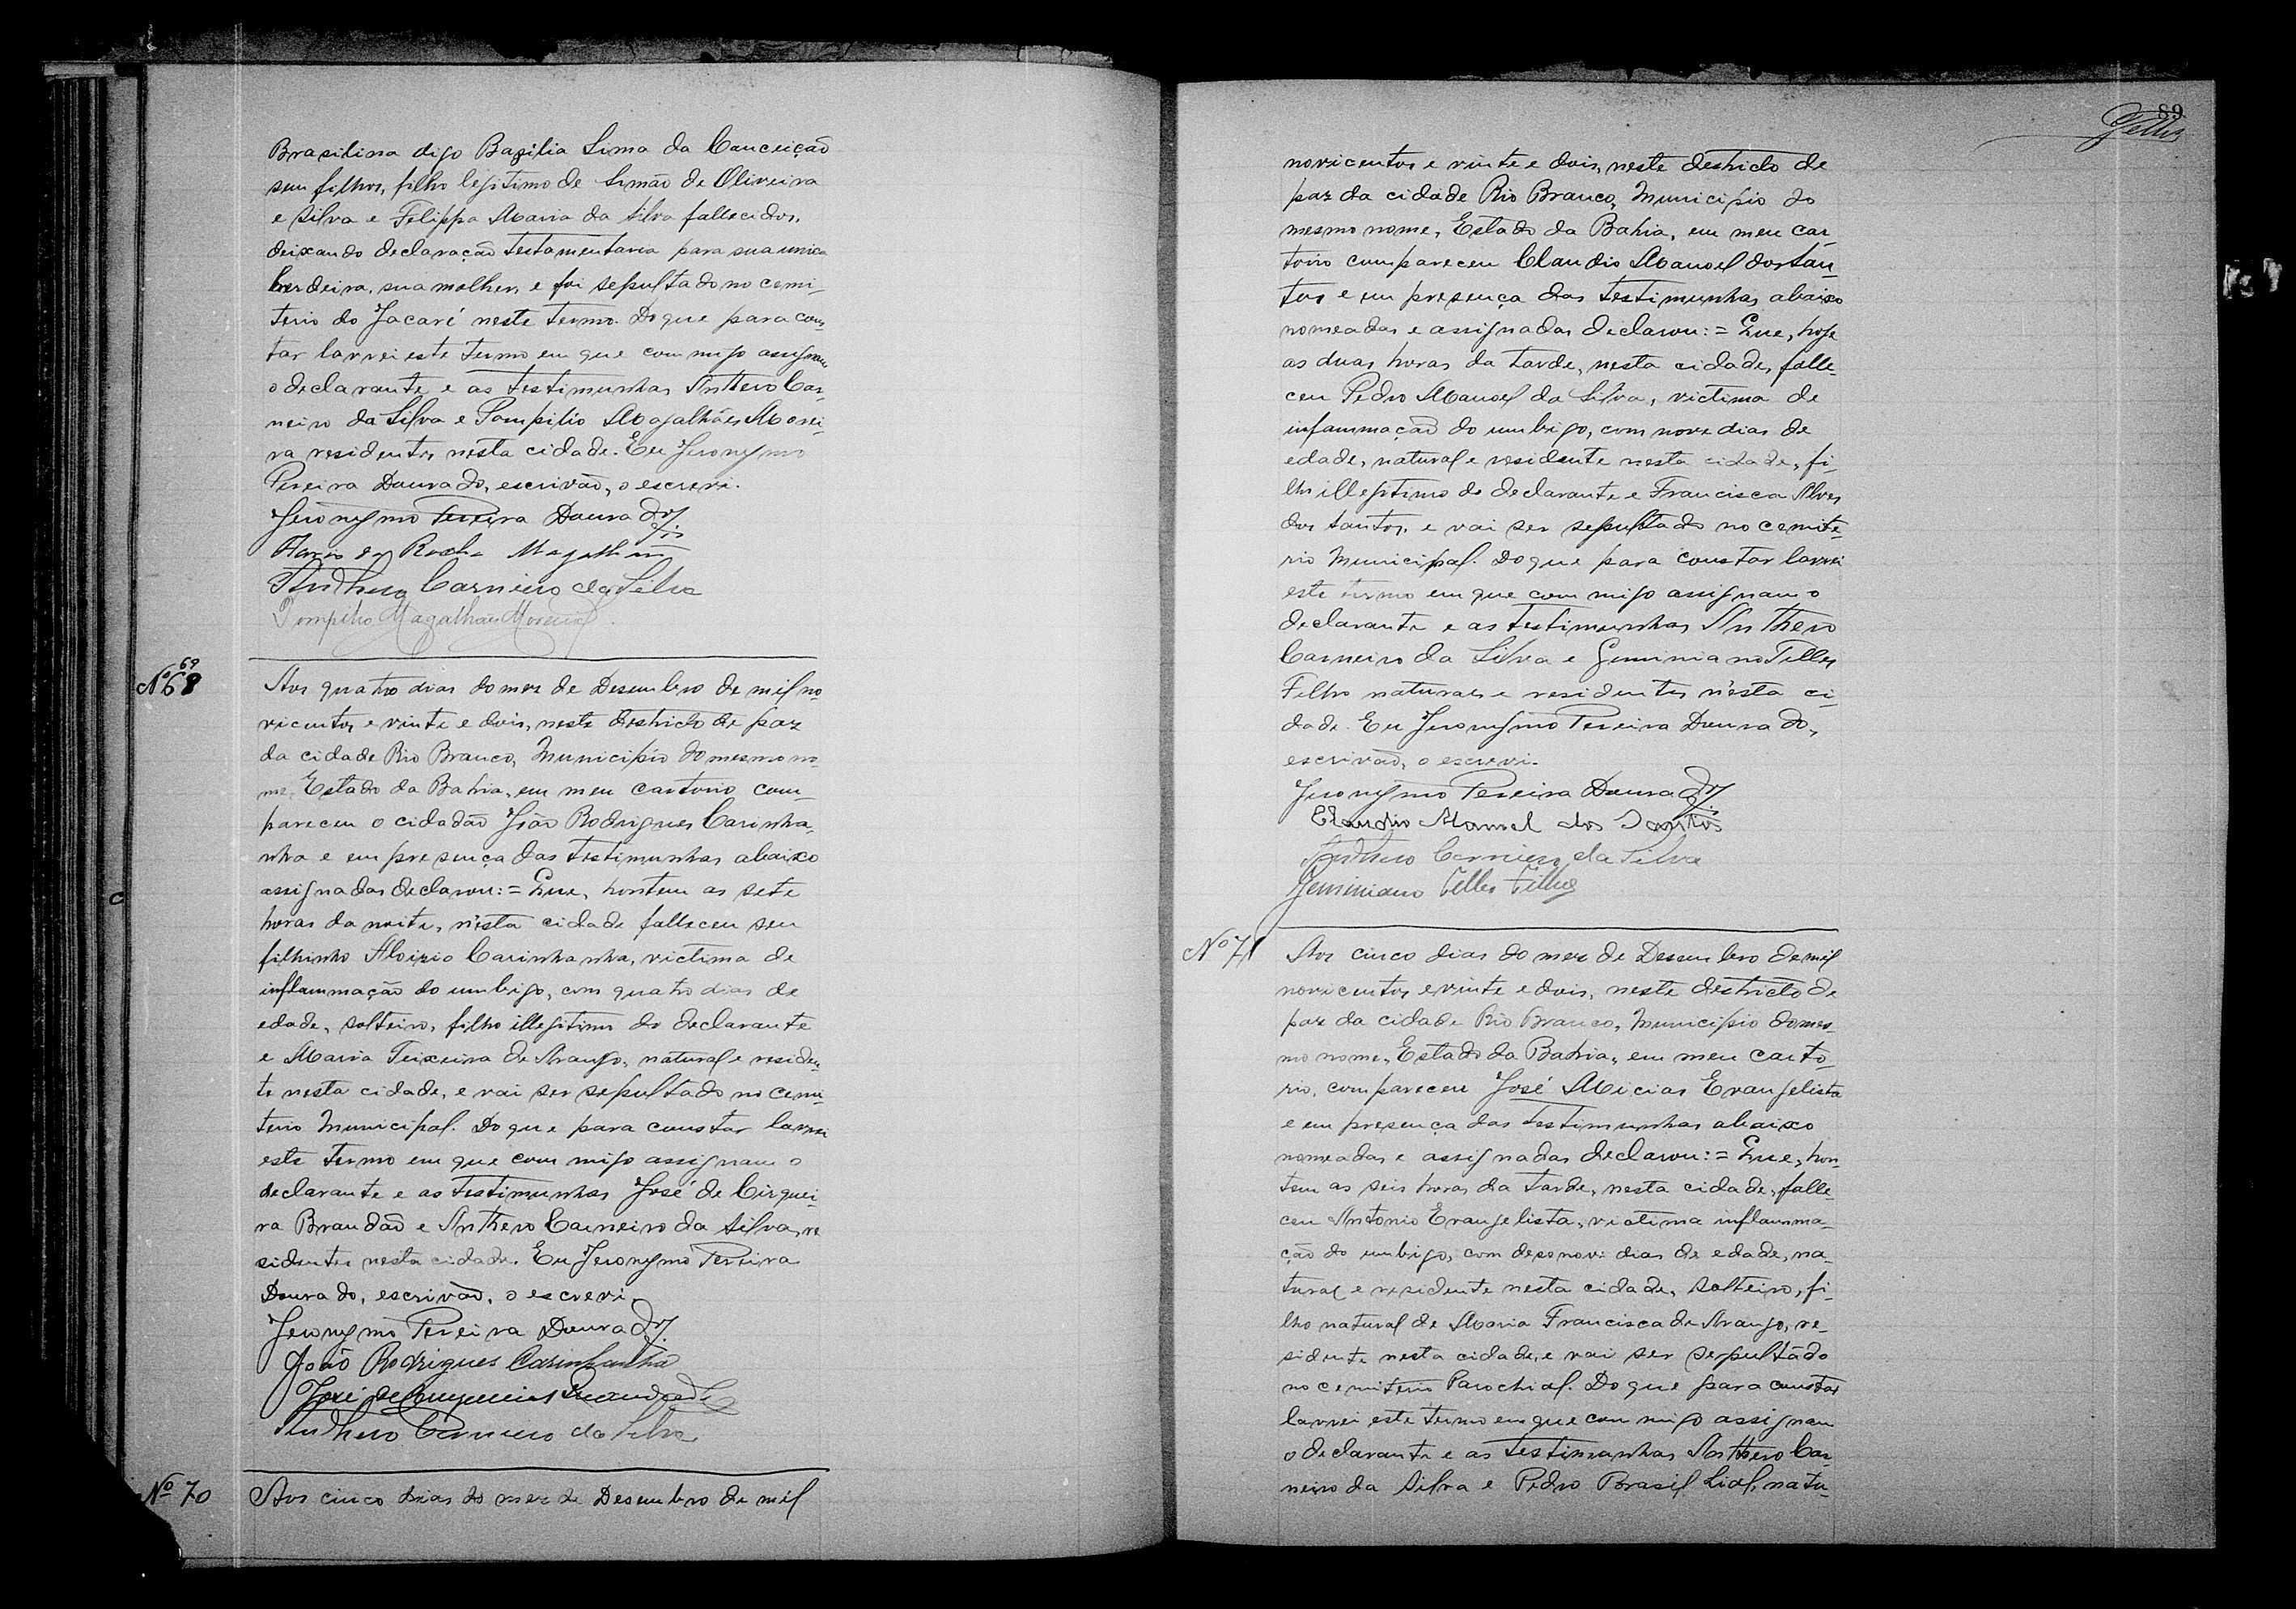 Brasilina digo Bazilia Lima da Conceição
sem filhos, filho legitimo de Simão de Oliveira
e Silva e Filippa Maria da Silva fallecidos,
deixando declaração testamentaria para sua unica
herdeira, sua molher, e foi sepultado no cemi-
terio do Jacaré neste termo. Do que para cons-
tar lavrei este termo em que commigo assignam
o declarante e as testimunhas Anthero Car-
neiro da Silva e Pompilio Magalhães Morei-
ra residentes nesta cidade. Eu Jeronymo
Pereira Dourado, escrivão, o escrevi.
Jeronymo Pereira Dourado
da Rocha Magalhães
Anthero Carneiro da Silva
Pompilio Magalhães Moreira
Nº 68
69
Aos quatro dias do mez de Desembro de mil no-
vicentos e vinte e dois, neste destricto de paz
da cidade Rio Branco, Municipio do mesmo no-
me, Estado da Bahia, em meu cartorio com-
pareceu o cidadão João Rodrigues Carinha-
nha e em presença das testimunhas abaixo
assignadas declarou: = Que, hontem as sete
horas da noite, n'esta cidade falleceu seu
filhinho Aloizio Carinhanha, victima de
inflammação do umbigo, com quatro dias de
edade, solteiro, filho illegitimo do declarante
e Maria Teixeira de Araujo, natural e residen-
te nesta cidade, e vai ser sepultado no cemi-
terio Municipal. Do que para constar lavrei
este termo em que commigo assignam o
declarante e as testimunhas José de Cirquei-
ra Brandão e Anthero Carneiro da Silva, re
sidentes nesta cidade. Eu Jeronymo Pereira
Dourado, escrivão, o escrevi.
Jeronymo Pereira Dourado
João Rodrigues Carinhanha
José de Brandão
Anthero Carneiro da Silva
Nº 70
Aos cinco dias do mez de Desembro de mil
89
Telles
novicentos e vinte e dois, neste destricto de
paz da cidade Rio Branco, Municipio do
mesmo nome, Estado da Bahia, em meu car-
torio compareceu Claudio Manoel dos San-
tos e em presença das testimunhas abaixo
nomeadas e assignadas declarou: = Que, hoje
as duas horas da tarde, nesta cidade, falle-
ceu Pedro Manoel da Silva, victima de
infammação do umbigo, com nove dias de
edade, natural e residente nesta cidade, fi-
lho illegitimo do declarante e Francisca Alves
dos Santos, e vai ser sepultado no cemite-
rio Municipal. Do que para constar lavrei
este termo em que commigo assignam o
declarante e as testimunhas Anthero
Carneiro da Silva e Geminiano Telles
Filho naturaes e residentes n'esta ci-
dade. Eu Jeronymo Pereira Dourado,
escrivão, o escrevi.
Jeronymo Pereira Dourado
Claudio Manoel dos Santos
Anthero Carneiro da Silva
Geminiano Telles Filho
Nº 71
Aos cinco dias do mez de Desembro de mil
novicentos e vinte e dois, neste destricto de
paz da cidade Rio Branco, Municipio do mes-
mo nome, Estado da Bahia, em meu carto-
rio, compareceu José Micias Evangelista
e em presença das testimunhas abaixo
nomeadas e assignadas declarou: = Que, hon-
tem as seis horas da tarde, nesta cidade, falle-
ceu Antonio Evangelista, victima inflamma-
ção do umbigo, com desenove dias de edade, na-
tural e residente nesta cidade, solteiro, fi-
lho natural de Maria Francisca de Araujo, re-
sidente nesta cidade, e vai ser sepultado
no cemiterio Parochial. Do que para constar
lavrei este termo em que commigo assignam
o declarante e as testimunhas Anthero Car-
neiro da Silva e Pedro Brasil Lial, natu-